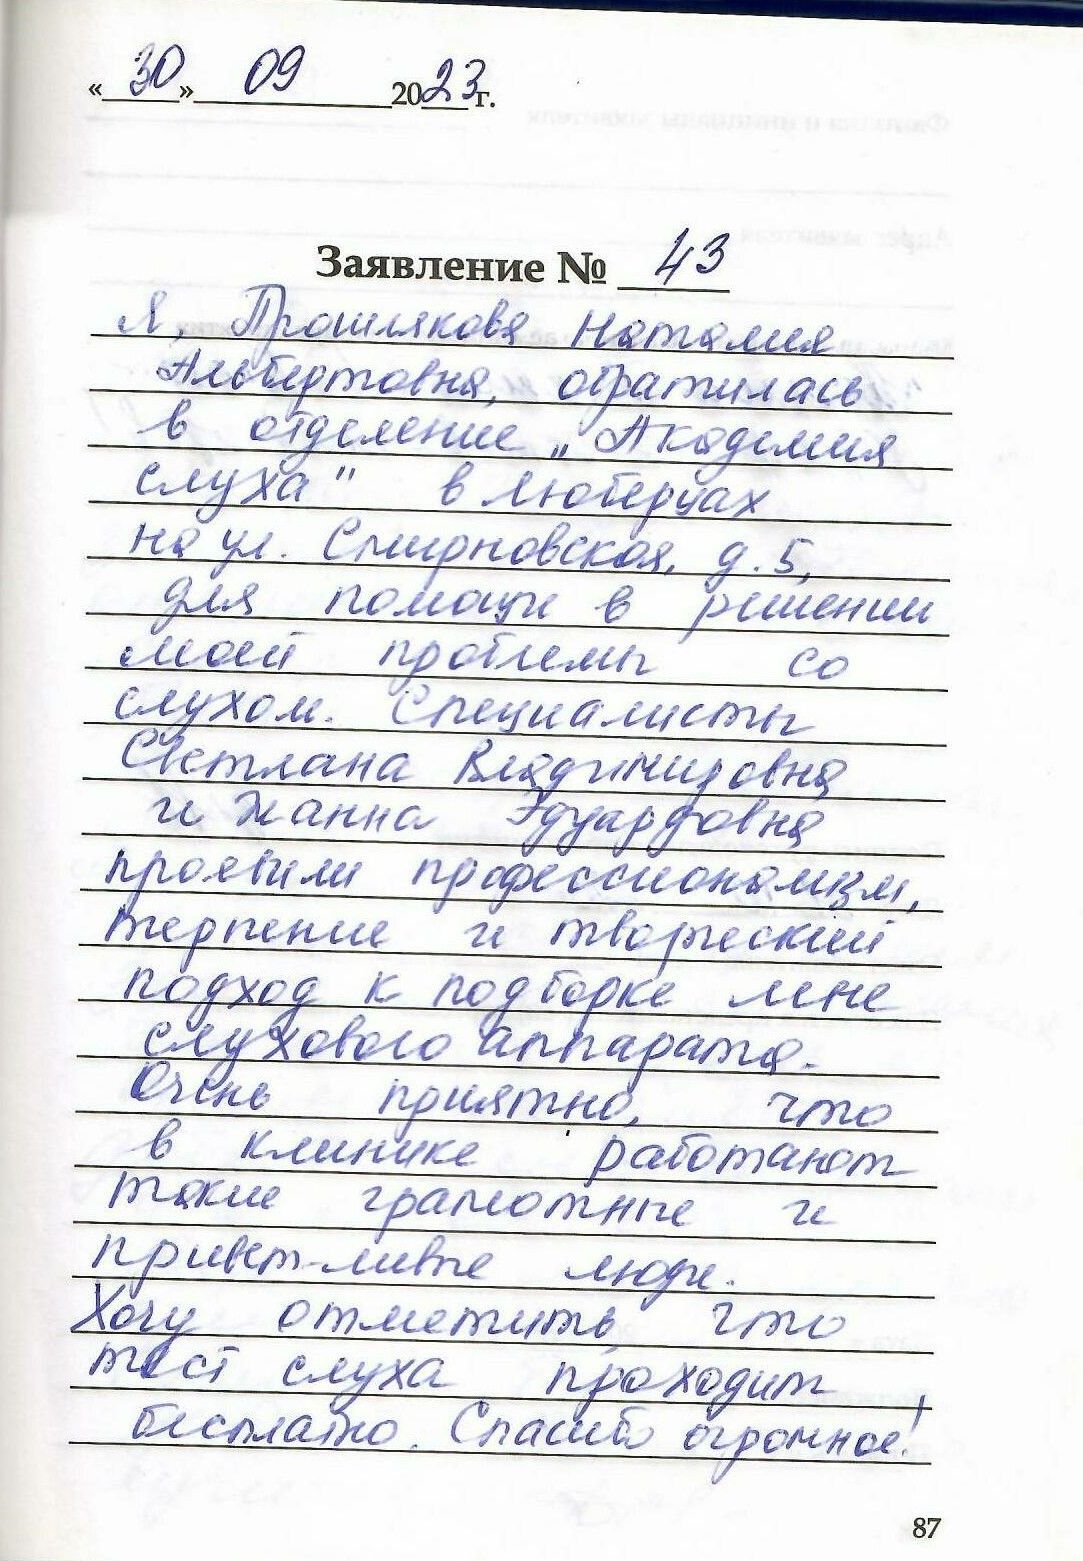 «30» 09 2023 г.
Заявление № 43
Я, Прошлякова Наталия
Альбертовна, обратилась
в отделение „Академия
слуха" в Люберцах
на ул. Смирновская, д. 5,
для помощи в решении
моей проблемы со
слухом. Специалисты
Светлана Владимировна
и Жанна Эдуардовна
проявили профессионализм,
терпение и творческий
подход к подборке мне
слухового аппарата.
Очень приятно, что
в клинике работают
такие грамотные и
приветливые люди.
Хочу отметить, что
тест слуха проходит
бесплатно. Спасибо огромное!
87